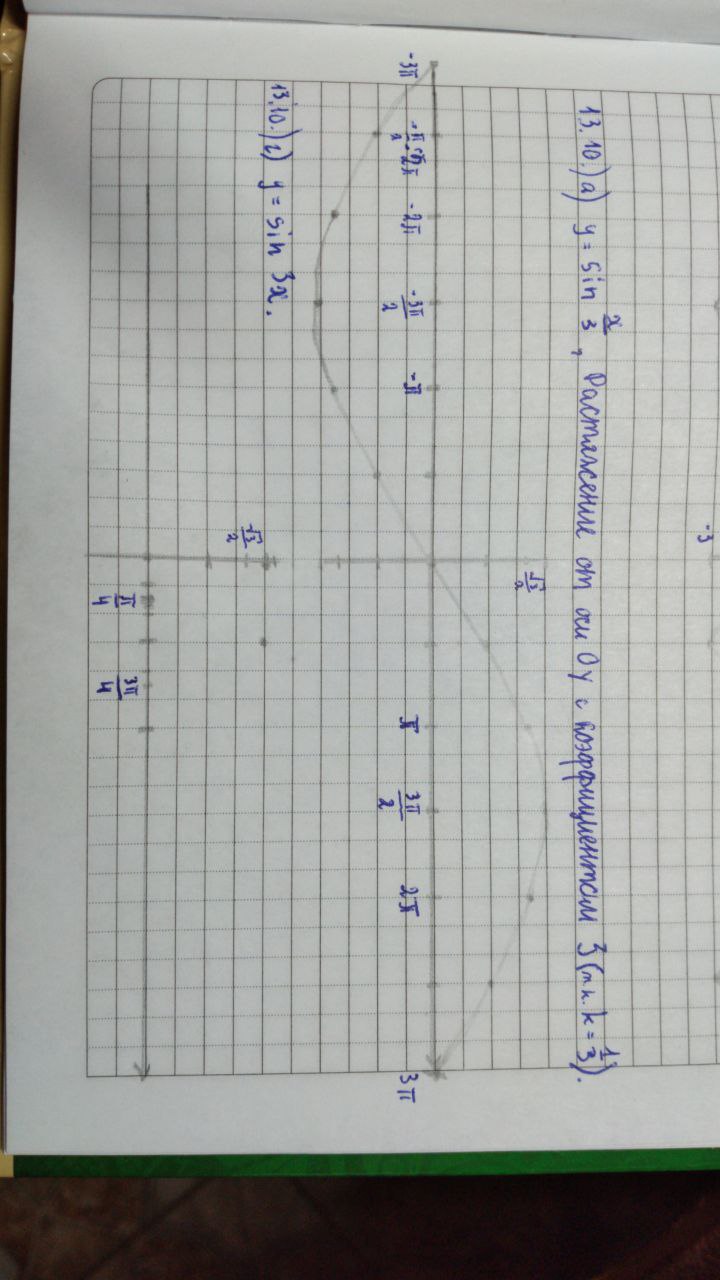 -3
13.10.) а) y = sin x/3, Растяжение от оси Oy с коэффициентом 3 (т.к. k = 1/3).
√3/2
-3π -2π -3π/2 -π π 3π/2 2π 3π
13.10.) г) y = sin 3x.
-√3/2
π/4 3π/4